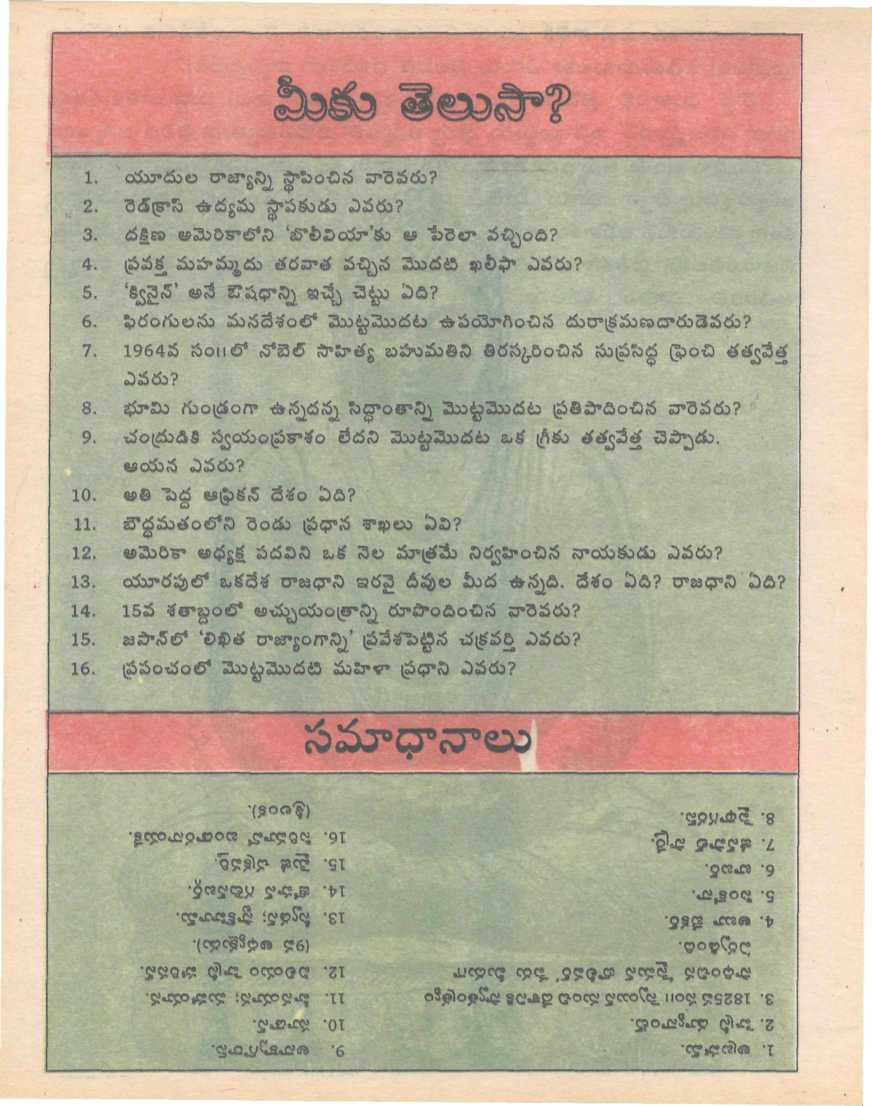 మీకు తెలుసా?
1. యూదుల రాజ్యాన్ని స్థాపించిన వారెవరు?
2. రెడ్‌క్రాస్ ఉద్యమ స్థాపకుడు ఎవరు?
3. దక్షిణ అమెరికాలోని ‘బొలీవియా’కు ఆ పేరెలా వచ్చింది?
4. ప్రవక్త మహమ్మదు తరవాత వచ్చిన మొదటి ఖలీఫా ఎవరు?
5. ‘క్వినైన్’ అనే ఔషధాన్ని ఇచ్చే చెట్టు ఏది?
6. ఫిరంగులను మనదేశంలో మొట్టమొదట ఉపయోగించిన దురాక్రమణదారుడెవరు?
7. 1964వ సం॥లో నోబెల్ సాహిత్య బహుమతిని తిరస్కరించిన సుప్రసిద్ధ ఫ్రెంచి తత్వవేత్త
ఎవరు?
8. భూమి గుండ్రంగా ఉన్నదన్న సిద్ధాంతాన్ని మొట్టమొదట ప్రతిపాదించిన వారెవరు?
9. చంద్రుడికి స్వయంప్రకాశం లేదని మొట్టమొదట ఒక గ్రీకు తత్వవేత్త చెప్పాడు.
ఆయన ఎవరు?
10. అతి పెద్ద ఆఫ్రికన్ దేశం ఏది?
11. బౌద్ధమతంలోని రెండు ప్రధాన శాఖలు ఏవి?
12. అమెరికా అధ్యక్ష పదవిని ఒక నెల మాత్రమే నిర్వహించిన నాయకుడు ఎవరు?
13. యూరపులో ఒకదేశ రాజధాని ఇరవై దీవుల మీద ఉన్నది. దేశం ఏది? రాజధాని ఏది?
14. 15వ శతాబ్దంలో అచ్చుయంత్రాన్ని రూపొందించిన వారెవరు?
15. జపాన్‌లో ‘లిఖిత రాజ్యాంగాన్ని’ ప్రవేశపెట్టిన చక్రవర్తి ఎవరు?
16. ప్రపంచంలో మొట్టమొదటి మహిళా ప్రధాని ఎవరు?
సమాధానాలు
1. అబ్రహామ్.
2. హెన్రి డ్యూనాంట్.
3. 1825వ సం॥ స్పెయిన్ నుంచి దేశానికి స్వాతంత్ర్యం
సాధించిన ‘సైమన్ బొలీవర్’ పేరు మీదుగా
ఏర్పడింది.
4. అబూ బేకర్.
5. సింకోనా.
6. బాబర్.
7. జీన్‌పాల్ సార్త్రె.
8. పైథాగరస్.
9. అనాక్సాగోరాస్.
10. సూడాన్.
11. హీనయాన; మహాయాన.
12. విలియం హెన్రి హారిసన్.
(9వ అధ్యక్షుడు).
13. స్వీడన్; స్టాక్‌హోమ్.
14. జోహాన్ గుటెన్‌బర్గ్.
15. మైజి చక్రవర్తి.
16. సిరిమావో బండారనాయకె.
(శ్రీలంక).